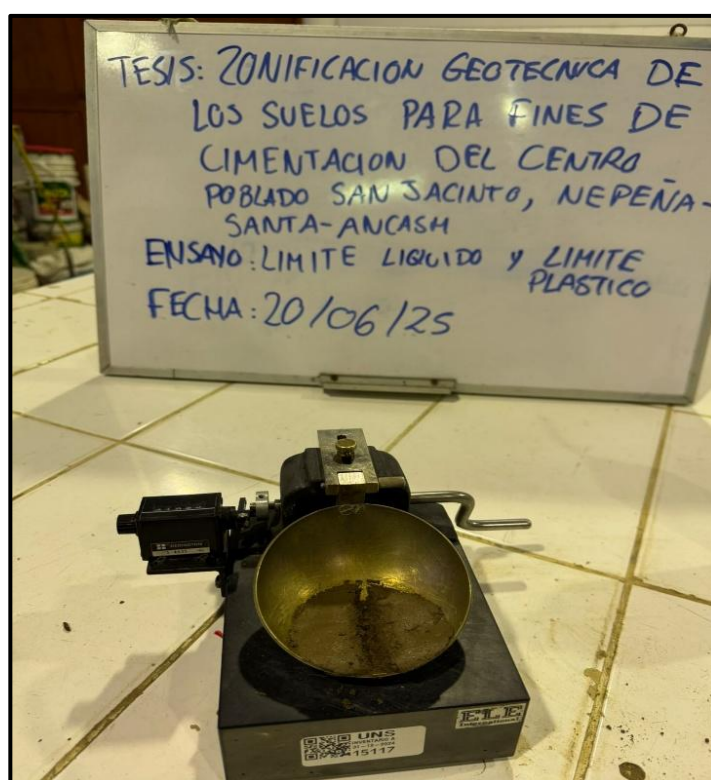 TESIS: ZONIFICACION GEOTECNICA DE
LOS SUELOS PARA FINES DE
CIMENTACION DEL CENTRO
POBLADO SAN JACINTO, NEPEÑA-
SANTA-ANCASH
ENSAYO: LIMITE LIQUIDO y LIMITE
PLASTICO
FECHA: 20/06/25
ELE
International
UNS
15117